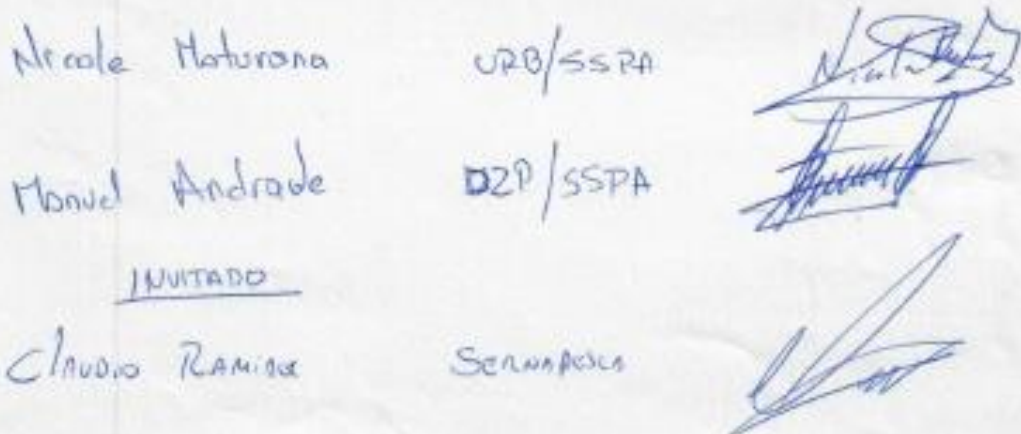 Nicole Maturana URB/SSPA
Manuel Andrade DZP/SSPA
INVITADO
Claudio Ramirez SERNAPESCA